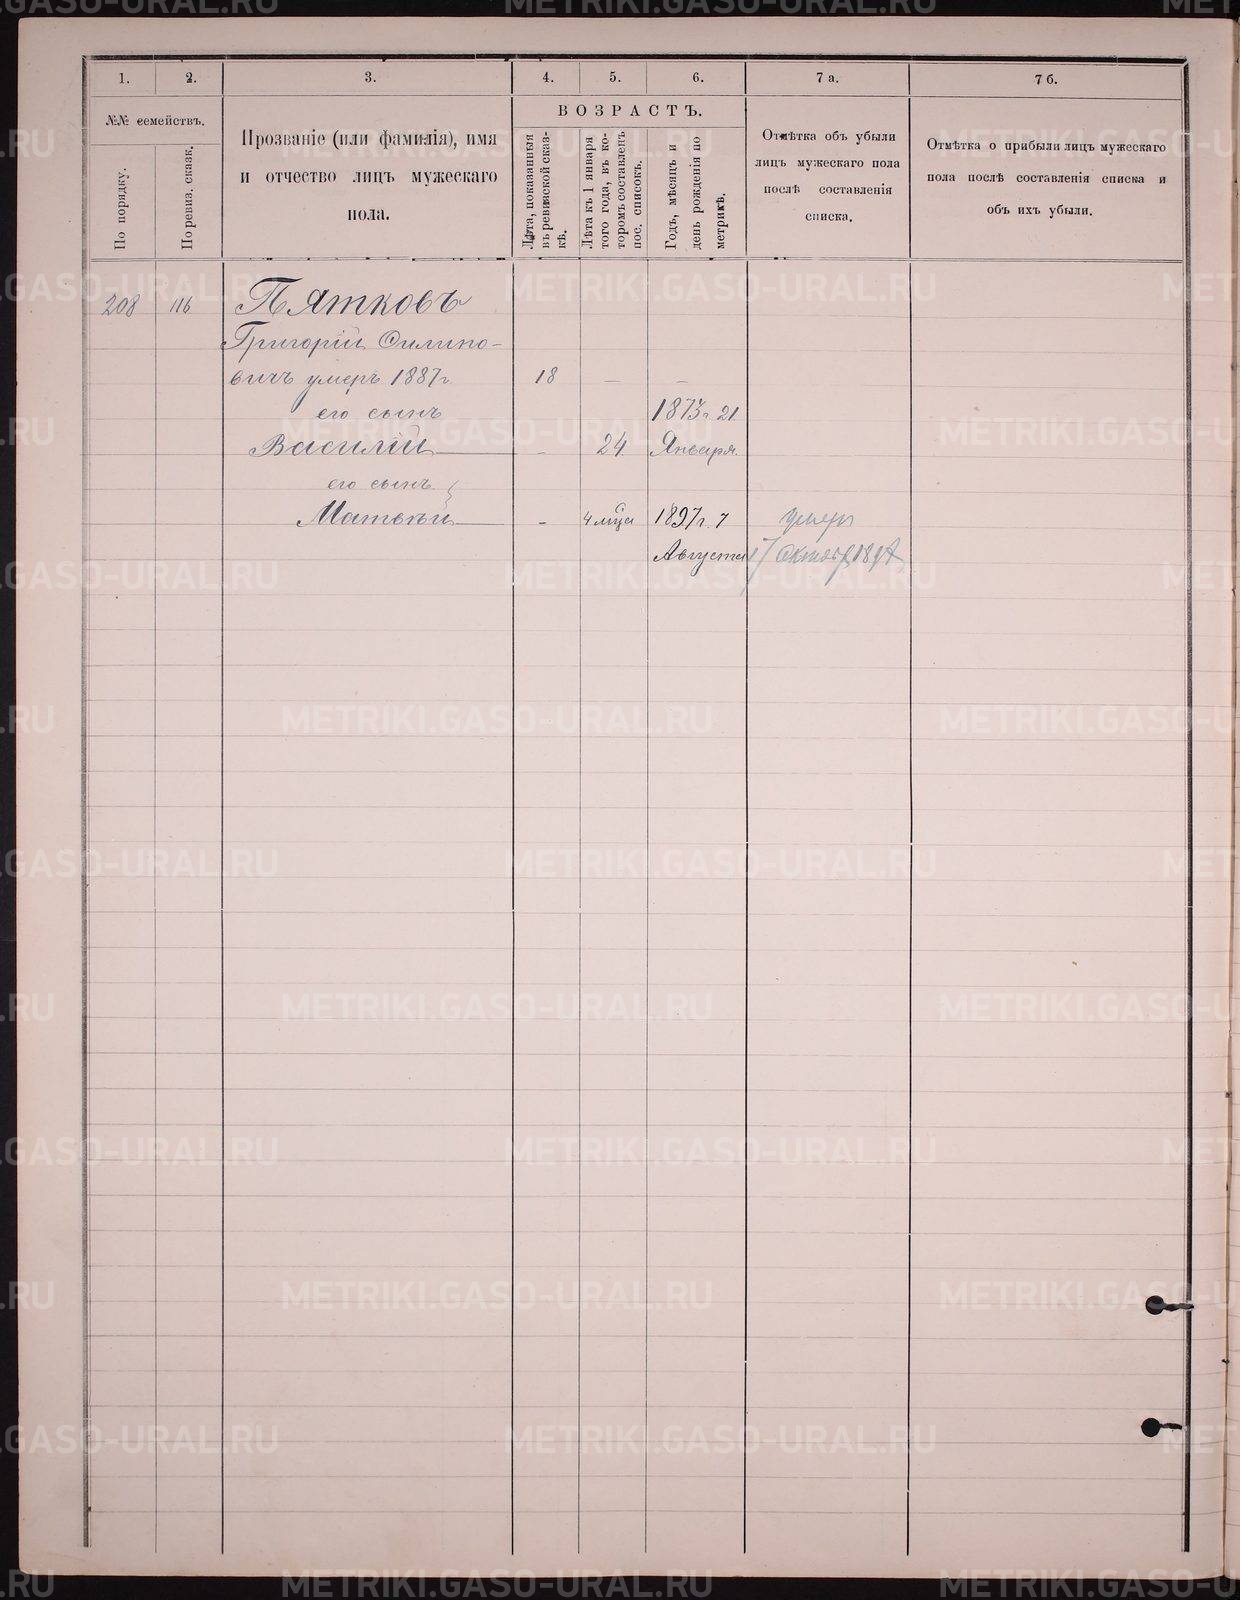 1.
2.
3.
4.
5.
6.
7 а.
7 б.
№№ семействъ.
По порядку.
По ревиз. сказк.
Прозваніе (или фамилія), имя
и отчество лицъ мужескаго
пола.
ВОЗРАСТЪ.
Лѣта, показанныя
въ ревизской сказ-
кѣ.
Лѣта къ 1 января
того года, въ ко-
торомъ составленъ
пос. списокъ.
Годъ, мѣсяцъ и
день рожденія по
метрикѣ.
Отмѣтка объ убыли
лицъ мужескаго пола
послѣ составленія
списка.
Отмѣтка о прибыли лицъ мужескаго
пола послѣ составленія списка и
объ ихъ убыли.
208 116 Пятковъ
Григорій Филипо-
вичъ умеръ 1887 г. 18 — —
его сынъ 1873 г. 21
Василій - 24 Января.
его сынъ
Матвѣй - 4 мѣца 1897 г. 7 умеръ
Августа 17 Октябр
METRIKI.GASO-URAL.RU